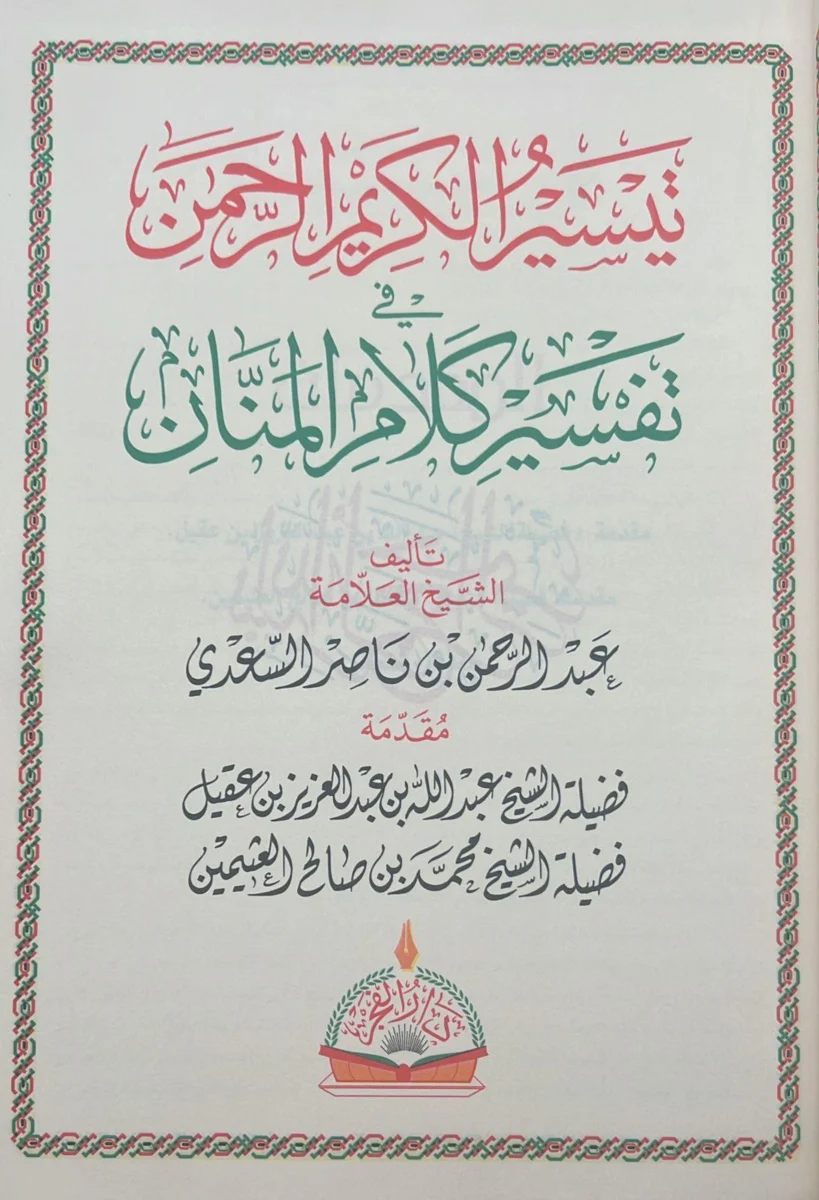 تَيْسِيرُ الْكَرِيمِ الرَّحْمَنِ
فِي
تَفْسِيرِ كَلَامِ الْمَنَّانِ
تَأليف
الشَّيخ العَلّامَة
عَبْد الرَّحمن بْن نَاصِر السَّعْدي
مُقَدّمَة
فضيلة الشيخ عبد الله بن عبد العزيز بن عقيل
فضيلة الشيخ محمّد بن صالح العثيمين
دَارُ الفَجْر